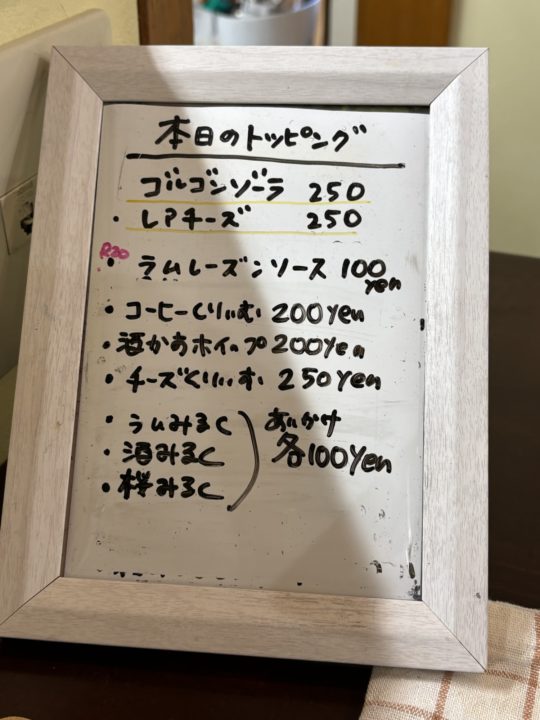 本日のトッピング
ゴルゴンゾーラ 250
・レアチーズ 250
R20
・ラムレーズンソース 100yen
・コーヒーくりぃむ 200yen
・酒かすホイップ 200yen
・チーズくりぃむ 250yen
・ラムみるく
・酒みるく
・桜みるく
あいかけ
各100yen